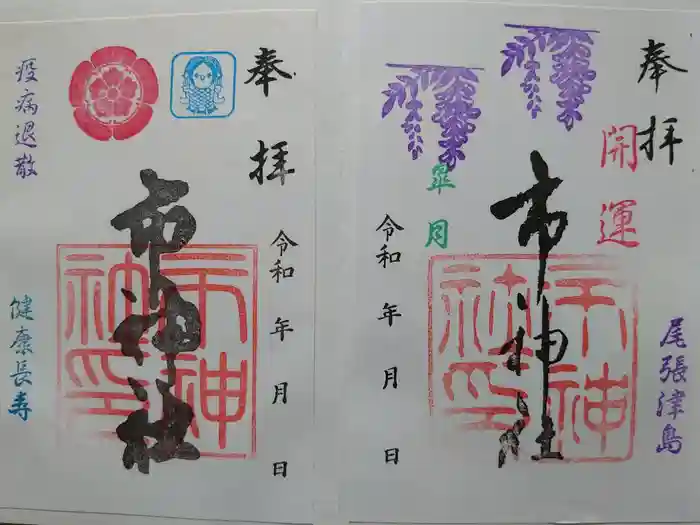 奉拝
疫病退散
市神社
市神社印
健康長寿
令和 年 月 日
奉拝
開運
皐月
市神社
市神社印
尾張津島
令和 年 月 日